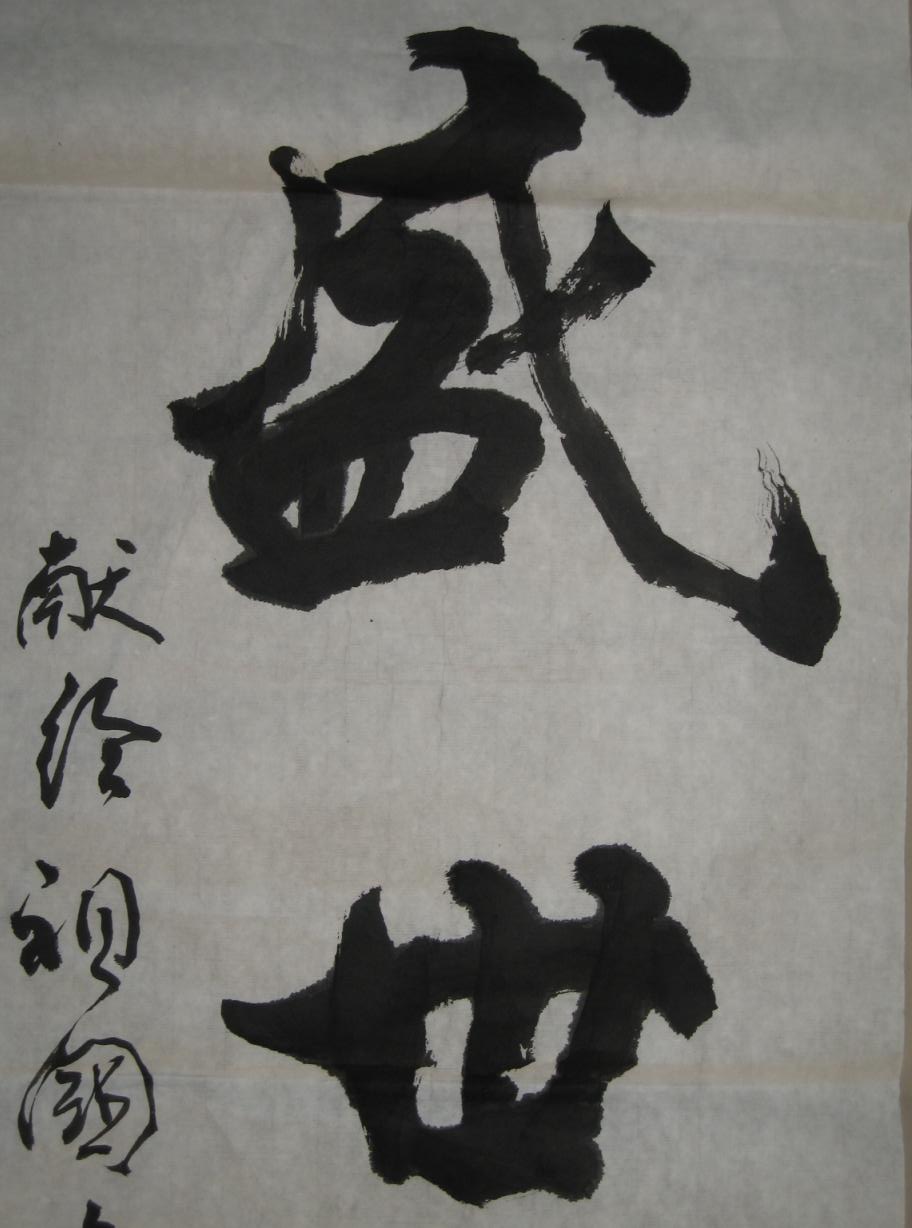 盛世
献给祖国